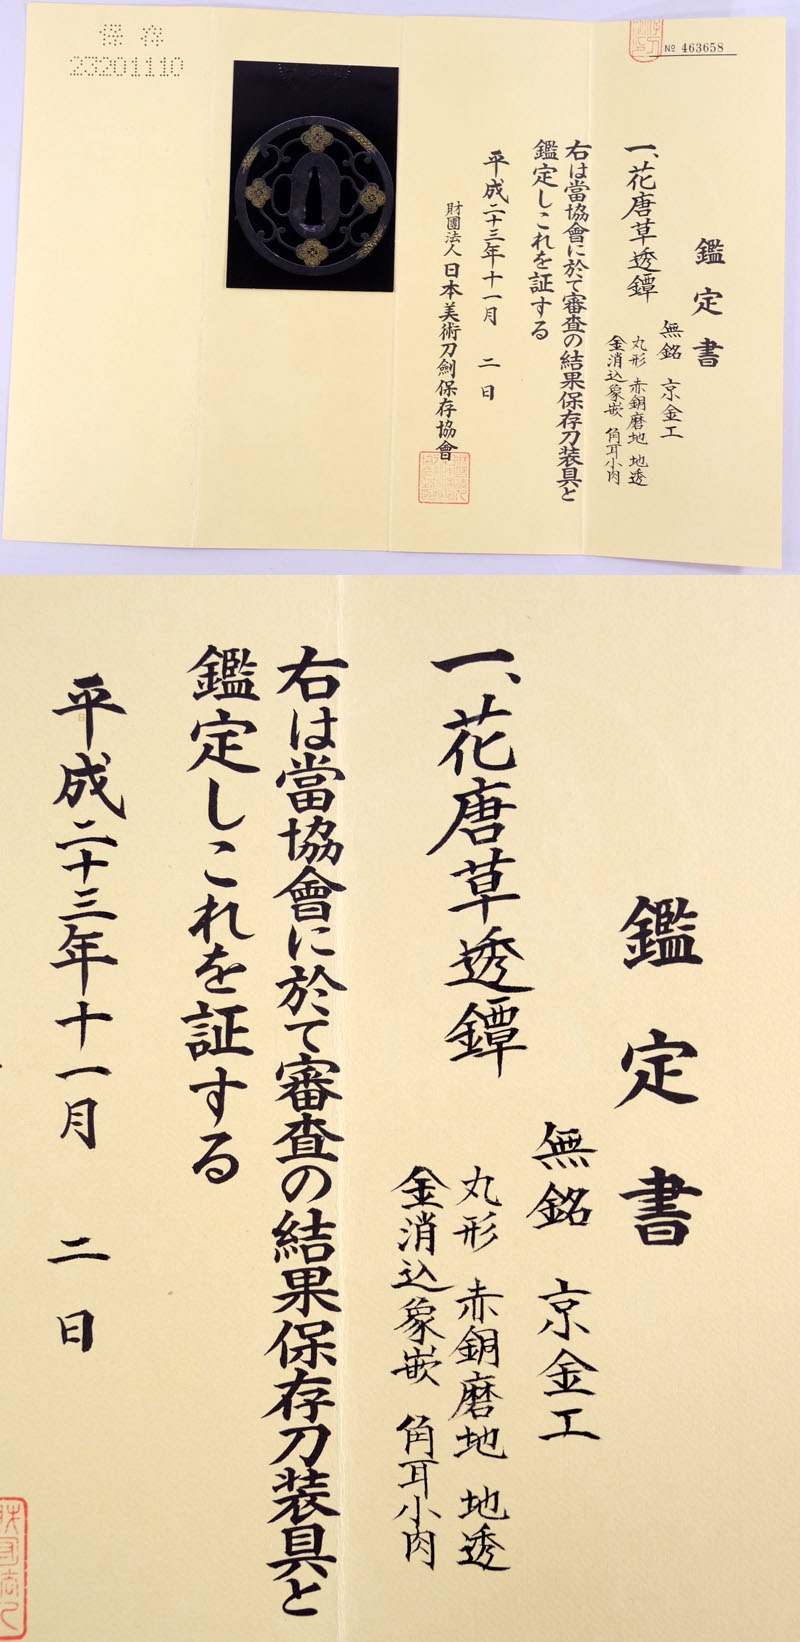 保存
23201110
№ 463658
鑑定書
一、花唐草透鐔
無銘 京金工
丸形 赤銅磨地 地透
金消込象嵌 角耳小肉
右は當協會に於て審査の結果保存刀装具と
鑑定しこれを証する
平成二十三年十一月 二日
財團法人日本美術刀劍保存協會
鑑定書
一、花唐草透鐔
無銘 京金工
丸形 赤銅磨地 地透
金消込象嵌 角耳小肉
右は當協會に於て審査の結果保存刀装具と
鑑定しこれを証する
平成二十三年十一月 二日